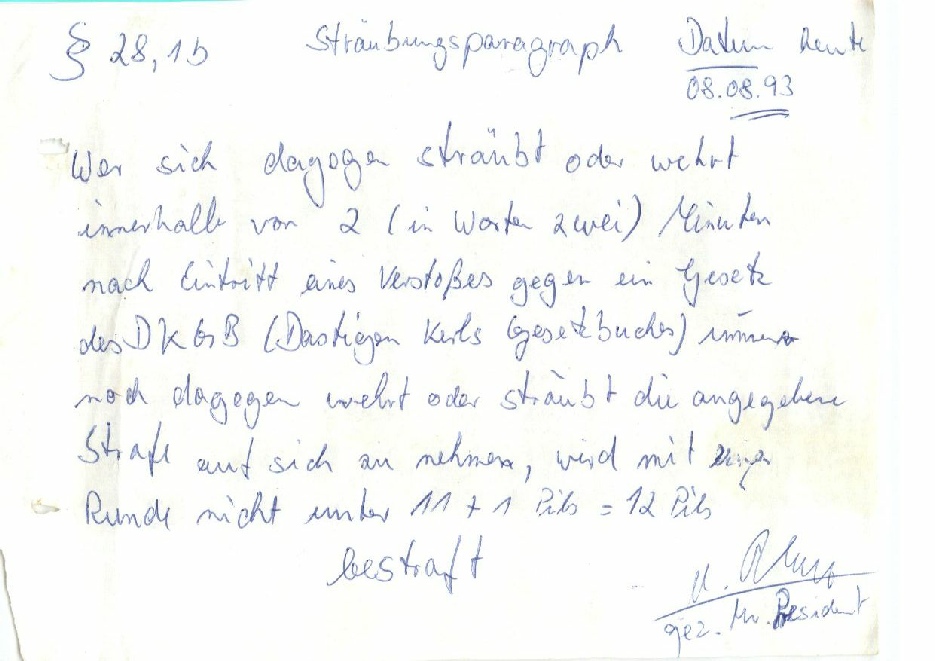 § 28,1b Sträubungsparagraph Datum heute
08.08.93
Wer sich dagegen sträubt oder wehrt
innerhalb von 2 (in Worten zwei) Minuten
nach Eintritt eines Verstoßes gegen ein Gesetz
des DKGsB (Dastigen Kerls Gesetzbuches) immer
noch dagegen wehrt oder sträubt die angegebene
Strafe auf sich zu nehmen, wird mit einer
Runde nicht unter 11 + 1 Pils = 12 Pils
bestraft
gez. Mr. President